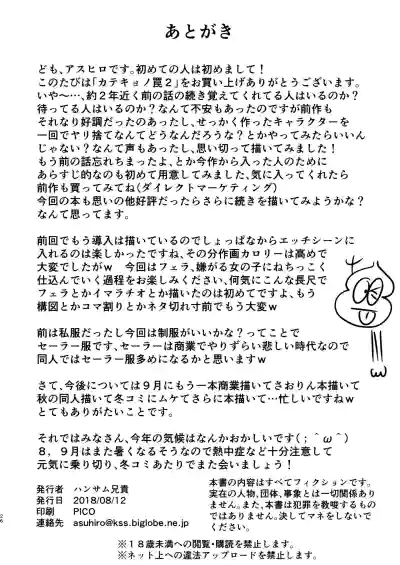 あとがき
ども、アスヒロです。初めての人は初めまして!
このたびは「カテキョノ罠2」をお買い上げありがとうございます。
いや〜…、約2年近く前の話の続き覚えてくれてる人はいるのか?
待ってる人はいるのか?なんて不安もあったのですが前作も
それなり好調だったのあったし、せっかく作ったキャラクターを
一回でヤリ捨てなんてどうなんだろうな?とかやってみたらいいん
じゃない?なんて声もあったし、思い切って描いてみました!
もう前の話忘れちまったよ、とか今作から入った人のために
あらすじ的なのも初めて用意してみました、気に入ってくれたら
前作も買ってみてね(ダイレクトマーケティング)
今回の本も思いの他好評だったらさらに続きを描いてみようかな?
なんて思ってます。
前回でもう導入は描いているのでしょっぱなからエッチシーンに
入れるのは楽しかったですね、その分作画カロリーは高めで
大変でしたがw　今回はフェラ、嫌がる女の子にねちっこく
仕込んでいく過程をお楽しみください、何気にこんな長尺で
フェラとかイマラチオとか描いたのは初めてですよ、もう
構図とかコマ割りとかネタ切れ寸前でもう大変w
前は私服だったし今回は制服がいいかな?ってことで
セーラー服です、セーラーは商業でやりずらい悲しい時代なので
同人ではセーラー服多めになるかと思いますw
さて、今後については9月にもう一本商業描いてさおりん本描いて
秋の同人描いて冬コミにムケてさらに本描いて…忙しいですねw
とてもありがたいことです。
それではみなさん、今年の気候はなんかおかしいです(；＾ω＾)
8，9月はまた暑くなるそうなので熱中症など十分注意して
元気に乗り切り、冬コミあたりでまた会いましょう!
発行者　ハンサム兄貴
発行日　2018/08/12
印刷　PICO
連絡先　asuhiro@kss.biglobe.ne.jp
本書の内容はすべてフィクションです。
実在の人物、団体、事象とは一切関係あり
ません。また、本書は犯罪を教唆するもの
ではありません。決してマネをしないで
ください。
※18歳未満への閲覧・購読を禁止します。
※ネット上への違法アップロードを禁止します。
26